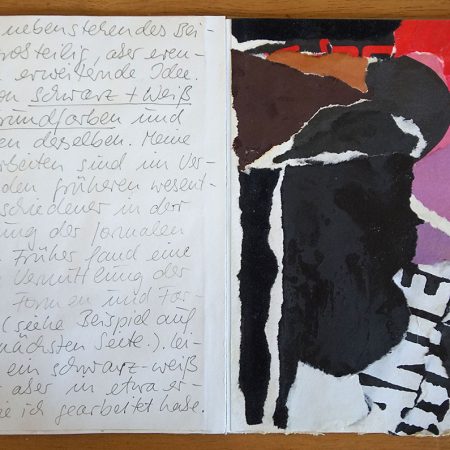 nebenstehendes Bei-
oßteilig, aber even-
erweiternde Idee.
on Schwarz + Weiß
rundfarben und
en derselben. Meine
rbeiten sind im Ver-
den früheren wesent-
schiedener in der
ung der formalen
Früher fand eine
Vermittlung der
Formen und Far-
(siehe Beispiel auf
nächsten Seite.). Lei-
ein schwarz-weiß
aber in etwa er-
ie ich gearbeitet habe.